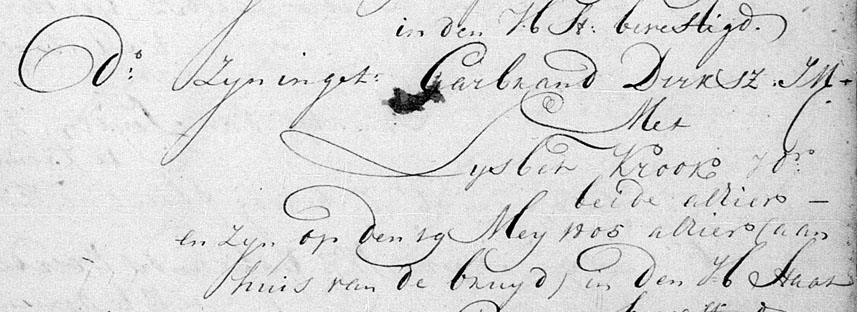 in den H: St: bevestigd.
Do: Zyn inget: Garbrand Dirksz. JM
Met
Lysbet Krook Jdr
beide alhier –
en Zyn op den 19 Mey 1805 alhier (aan
huis van de bruyd) in den H: Staat